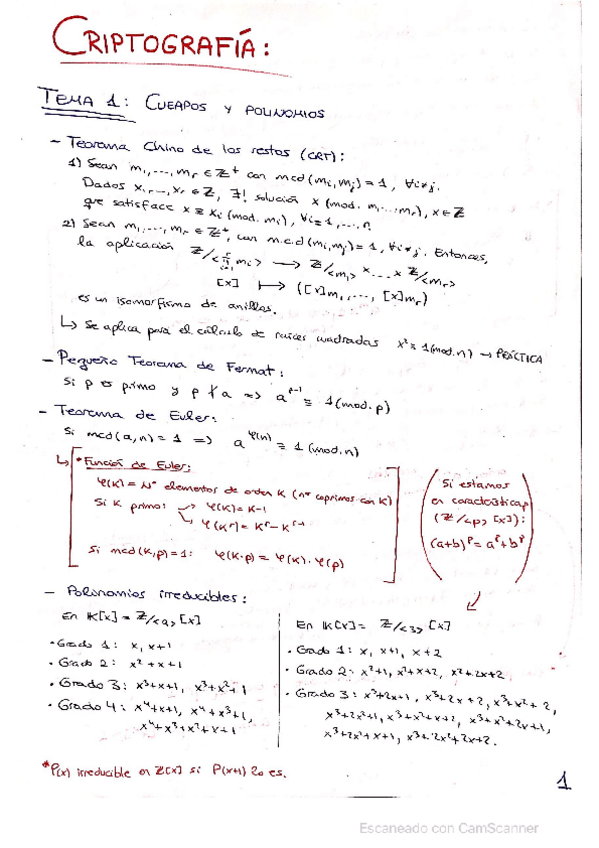 CRIPTOGRAFÍA:
TEMA 1: CUERPOS Y POLINOMIOS
- Teorema Chino de los restos (CRT):
1) Sean m₁,...,mᵣ ∈ ℤ⁺ con mcd(mᵢ,mⱼ)=1, ∀i≠j.
Dados x₁,...,xᵣ ∈ ℤ, ∃! solución x (mod. m₁...mᵣ), x∈ℤ
que satisface x ≡ xᵢ (mod. mᵢ), ∀i=1,...,r.
2) Sean m₁,...,mᵣ ∈ ℤ⁺, con m.c.d(mᵢ,mⱼ)=1, ∀i≠j. Entonces,
la aplicación ℤ/<∏ᵢ₌₁ʳ mᵢ> → ℤ/<m₁> x...x ℤ/<mᵣ>
[x] ↦ ([x]m₁,..., [x]mᵣ)
es un isomorfismo de anillos.
↳ Se aplica para el cálculo de raíces cuadradas x² ≡ 1 (mod. n) → PRÁCTICA
- Pequeño Teorema de Fermat:
Si p es primo y p ∤ a => aᵖ⁻¹ ≡ 1 (mod. p)
- Teorema de Euler:
Si mcd(a,n)=1 => a^φ(n) ≡ 1 (mod. n)
↳ * Función de Euler:
φ(K) = Nº elementos de orden K (nº coprimos con K)
Si K primo: → φ(K) = K-1
→ φ(Kʳ) = Kʳ - Kʳ⁻¹
Si mcd(K,p)=1: φ(K·p) = φ(K)·φ(p)
Si estamos
en característica p
(ℤ/<p> [x]):
(a+b)ᵖ = aᵖ + bᵖ
- Polinomios irreducibles:
En K[x] = ℤ/<2> [x]
• Grado 1: x, x+1
• Grado 2: x²+x+1
• Grado 3: x³+x+1, x³+x²+1
• Grado 4: x⁴+x+1, x⁴+x³+1,
x⁴+x³+x²+x+1
En K[x] = ℤ/<3> [x]
• Grado 1: x, x+1, x+2
• Grado 2: x²+1, x²+x+2, x²+2x+2
• Grado 3: x³+2x+1, x³+2x+2, x³+x²+2,
x³+2x²+1, x³+x²+x+2, x³+x²+2x+1,
x³+2x²+x+1, x³+2x²+2x+2.
*P(x) irreducible en ℤ[x] si P(x+1) lo es.
1
Escaneado con CamScanner